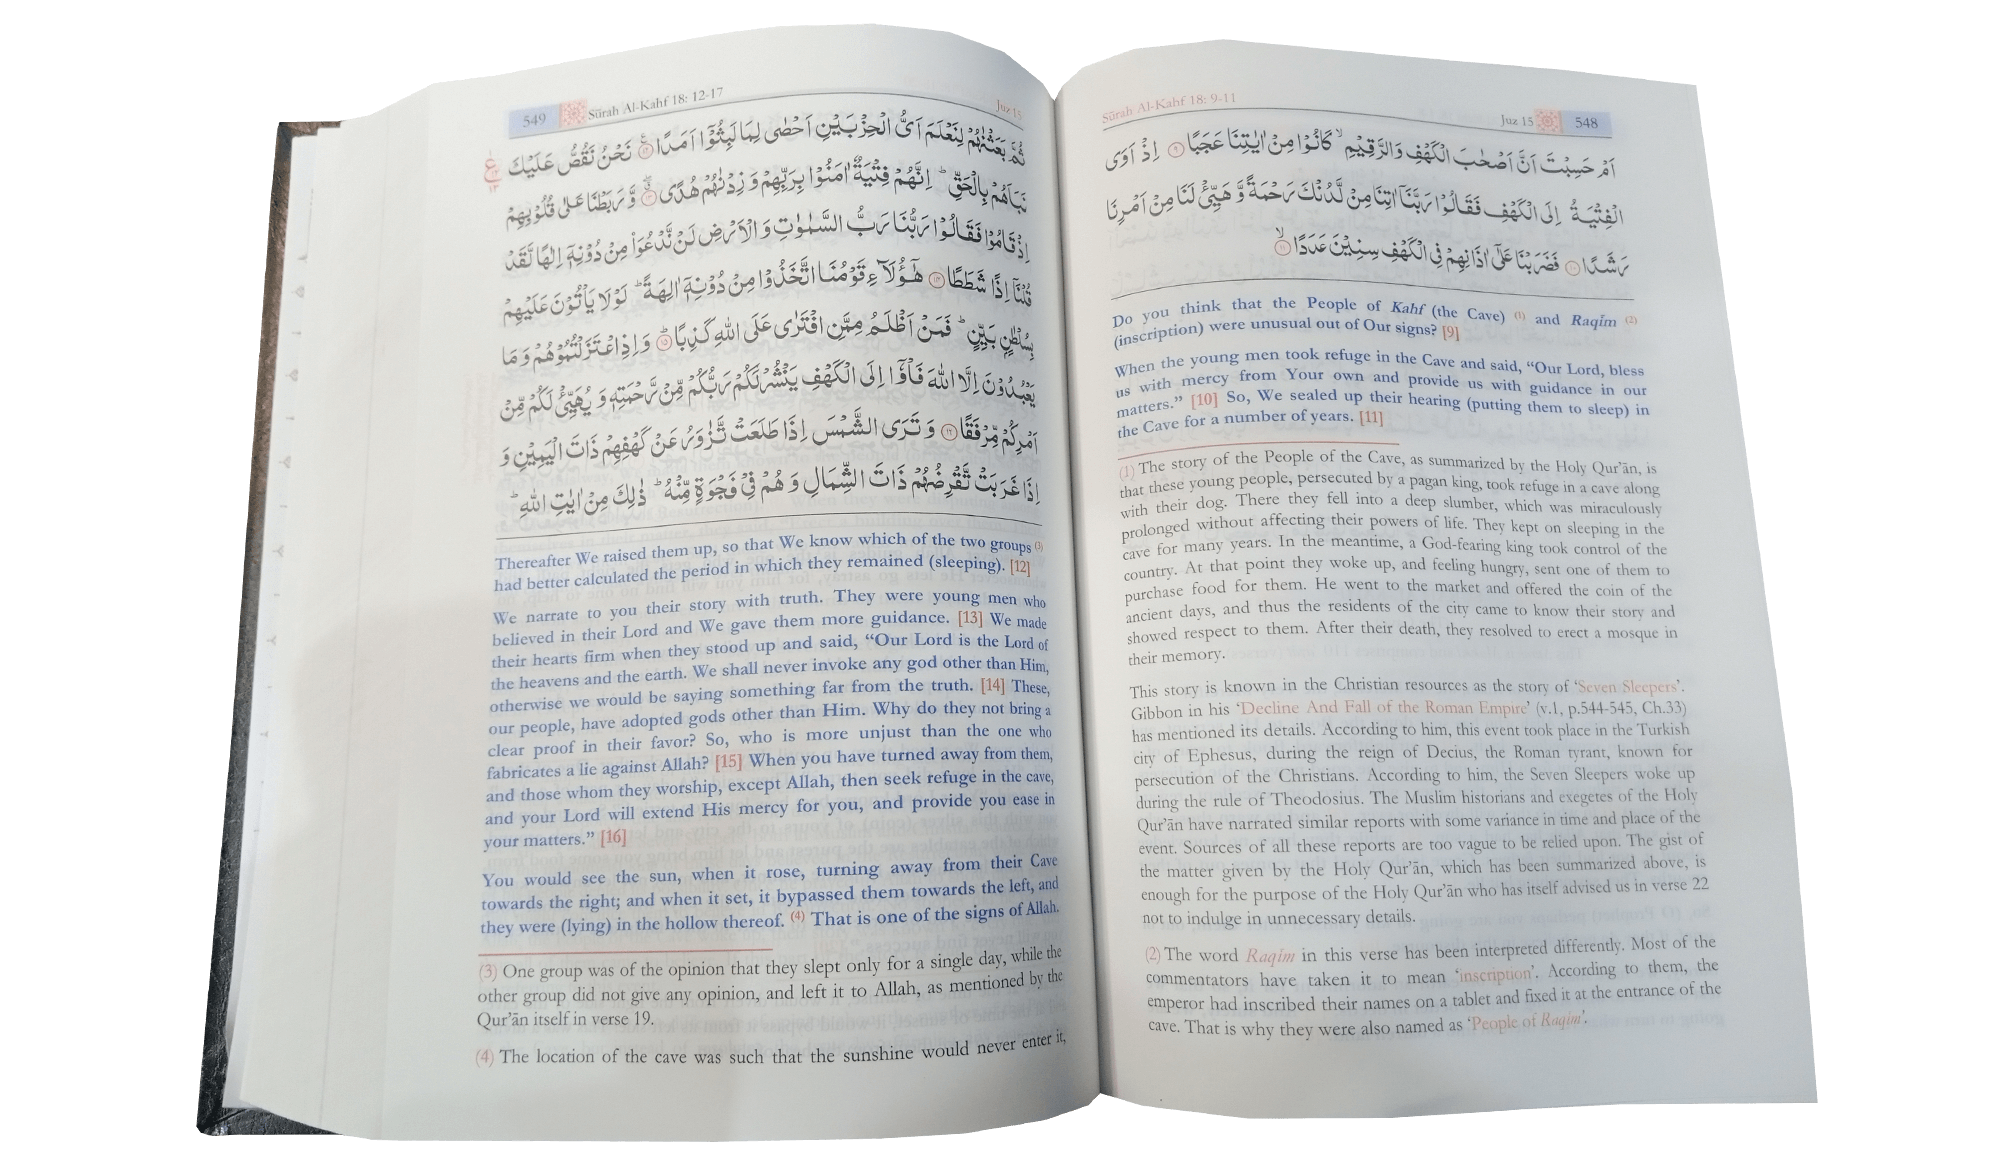 Sūrah Al-Kahf 18: 9-11
Juz 15
548
اَمْ حَسِبْتَ اَنَّ اَصْحٰبَ الْكَهْفِ وَالرَّقِيْمِ ۙ كَانُوْا مِنْ اٰيٰتِنَا عَجَبًا ۹ اِذْ اَوَى
الْفِتْيَةُ اِلَى الْكَهْفِ فَقَالُوْا رَبَّنَاۤ اٰتِنَا مِنْ لَّدُنْكَ رَحْمَةً وَّ هَيِّئْ لَنَا مِنْ اَمْرِنَا
رَشَدًا ۱۰ فَضَرَبْنَا عَلٰۤى اٰذَانِهِمْ فِى الْكَهْفِ سِنِيْنَ عَدَدًا ۙ ۱۱
Do you think that the People of Kahf (the Cave) (1) and Raqīm (2)
(inscription) were unusual out of Our signs? [9]
When the young men took refuge in the Cave and said, “Our Lord, bless
us with mercy from Your own and provide us with guidance in our
matters.” [10] So, We sealed up their hearing (putting them to sleep) in
the Cave for a number of years. [11]
(1) The story of the People of the Cave, as summarized by the Holy Qur’ān, is
that these young people, persecuted by a pagan king, took refuge in a cave along
with their dog. There they fell into a deep slumber, which was miraculously
prolonged without affecting their powers of life. They kept on sleeping in the
cave for many years. In the meantime, a God-fearing king took control of the
country. At that point they woke up, and feeling hungry, sent one of them to
purchase food for them. He went to the market and offered the coin of the
ancient days, and thus the residents of the city came to know their story and
showed respect to them. After their death, they resolved to erect a mosque in
their memory.
This story is known in the Christian resources as the story of ‘Seven Sleepers’.
Gibbon in his ‘Decline And Fall of the Roman Empire’ (v.1, p.544-545, Ch.33)
has mentioned its details. According to him, this event took place in the Turkish
city of Ephesus, during the reign of Decius, the Roman tyrant, known for
persecution of the Christians. According to him, the Seven Sleepers woke up
during the rule of Theodosius. The Muslim historians and exegetes of the Holy
Qur’ān have narrated similar reports with some variance in time and place of the
event. Sources of all these reports are too vague to be relied upon. The gist of
the matter given by the Holy Qur’ān, which has been summarized above, is
enough for the purpose of the Holy Qur’ān who has itself advised us in verse 22
not to indulge in unnecessary details.
(2) The word Raqīm in this verse has been interpreted differently. Most of the
commentators have taken it to mean ‘inscription’. According to them, the
emperor had inscribed their names on a tablet and fixed it at the entrance of the
cave. That is why they were also named as ‘People of Raqīm’.
549
Sūrah Al-Kahf 18: 12-17
Juz 15
ثُمَّ بَعَثْنٰهُمْ لِنَعْلَمَ اَىُّ الْحِزْبَيْنِ اَحْصٰى لِمَا لَبِثُوْۤا اَمَدًا ۱۲ نَحْنُ نَقُصُّ عَلَيْكَ
نَبَاَهُمْ بِالْحَقِّ ؕ اِنَّهُمْ فِتْيَةٌ اٰمَنُوْا بِرَبِّهِمْ وَ زِدْنٰهُمْ هُدًى ۱۳ وَّ رَبَطْنَا عَلٰى قُلُوْبِهِمْ
اِذْ قَامُوْا فَقَالُوْا رَبُّنَا رَبُّ السَّمٰوٰتِ وَ الْاَرْضِ لَنْ نَّدْعُوَا۠ مِنْ دُوْنِهٖۤ اِلٰهًا لَّقَدْ
قُلْنَاۤ اِذًا شَطَطًا ۱۴ هٰۤؤُلَآءِ قَوْمُنَا اتَّخَذُوْا مِنْ دُوْنِهٖۤ اٰلِهَةً ؕ لَوْلَا يَاْتُوْنَ عَلَيْهِمْ
بِسُلْطٰنٍۭ بَيِّنٍ ؕ فَمَنْ اَظْلَمُ مِمَّنِ افْتَرٰى عَلَى اللّٰهِ كَذِبًا ؕ ۱۵ وَ اِذِ اعْتَزَلْتُمُوْهُمْ وَ مَا
يَعْبُدُوْنَ اِلَّا اللّٰهَ فَاْوٗۤا اِلَى الْكَهْفِ يَنْشُرْ لَكُمْ رَبُّكُمْ مِّنْ رَّحْمَتِهٖ وَ يُهَيِّئْ لَكُمْ مِّنْ
اَمْرِكُمْ مِّرْفَقًا ۱۶ وَ تَرَى الشَّمْسَ اِذَا طَلَعَتْ تَّزٰوَرُ عَنْ كَهْفِهِمْ ذَاتَ الْيَمِيْنِ وَ
اِذَا غَرَبَتْ تَّقْرِضُهُمْ ذَاتَ الشِّمَالِ وَ هُمْ فِىْ فَجْوَةٍ مِّنْهُ ؕ ذٰلِكَ مِنْ اٰيٰتِ اللّٰهِ ؕ
Thereafter We raised them up, so that We know which of the two groups (3)
had better calculated the period in which they remained (sleeping). [12]
We narrate to you their story with truth. They were young men who
believed in their Lord and We gave them more guidance. [13] We made
their hearts firm when they stood up and said, “Our Lord is the Lord of
the heavens and the earth. We shall never invoke any god other than Him,
otherwise we would be saying something far from the truth. [14] These,
our people, have adopted gods other than Him. Why do they not bring a
clear proof in their favor? So, who is more unjust than the one who
fabricates a lie against Allah? [15] When you have turned away from them,
and those whom they worship, except Allah, then seek refuge in the cave,
and your Lord will extend His mercy for you, and provide you ease in
your matters.” [16]
You would see the sun, when it rose, turning away from their Cave
towards the right; and when it set, it bypassed them towards the left, and
they were (lying) in the hollow thereof. (4) That is one of the signs of Allah.
(3) One group was of the opinion that they slept only for a single day, while the
other group did not give any opinion, and left it to Allah, as mentioned by the
Qur’ān itself in verse 19.
(4) The location of the cave was such that the sunshine would never enter it,